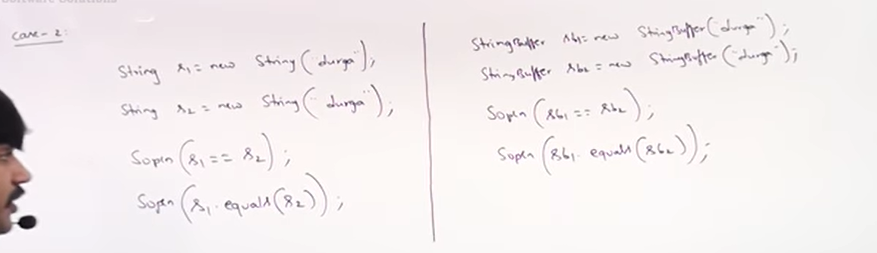 Software Solutions
Case-2:
String s1 = new String("durga");
String s2 = new String("durga");
Sopln(s1 == s2);
Sopln(s1.equals(s2));
StringBuffer sb1 = new StringBuffer("durga");
StringBuffer sb2 = new StringBuffer("durga");
Sopln(sb1 == sb2);
Sopln(sb1.equals(sb2));